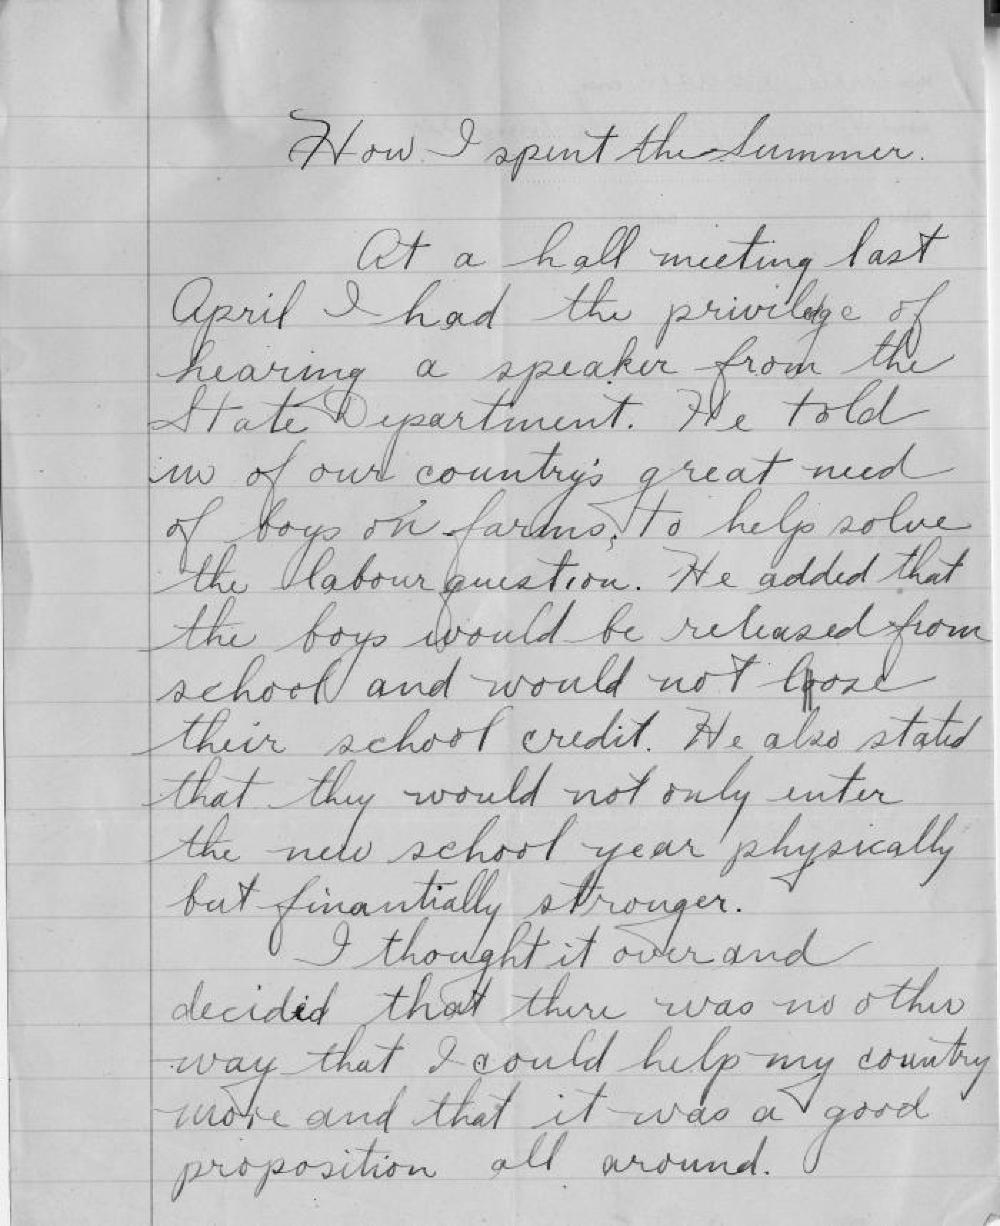 How I spent the Summer.
At a hall meeting last
April I had the priviledge of
hearing a speaker from the
State Department. He told
us of our country's great need
of boys on farms, to help solve
the labour question. He added that
the boys would be released from
school and would not loose
their school credit. He also stated
that they would not only enter
the new school year physically
but finantially stronger.
I thought it over and
decided that there was no other
way that I could help my country
more and that it was a good
proposition all around.